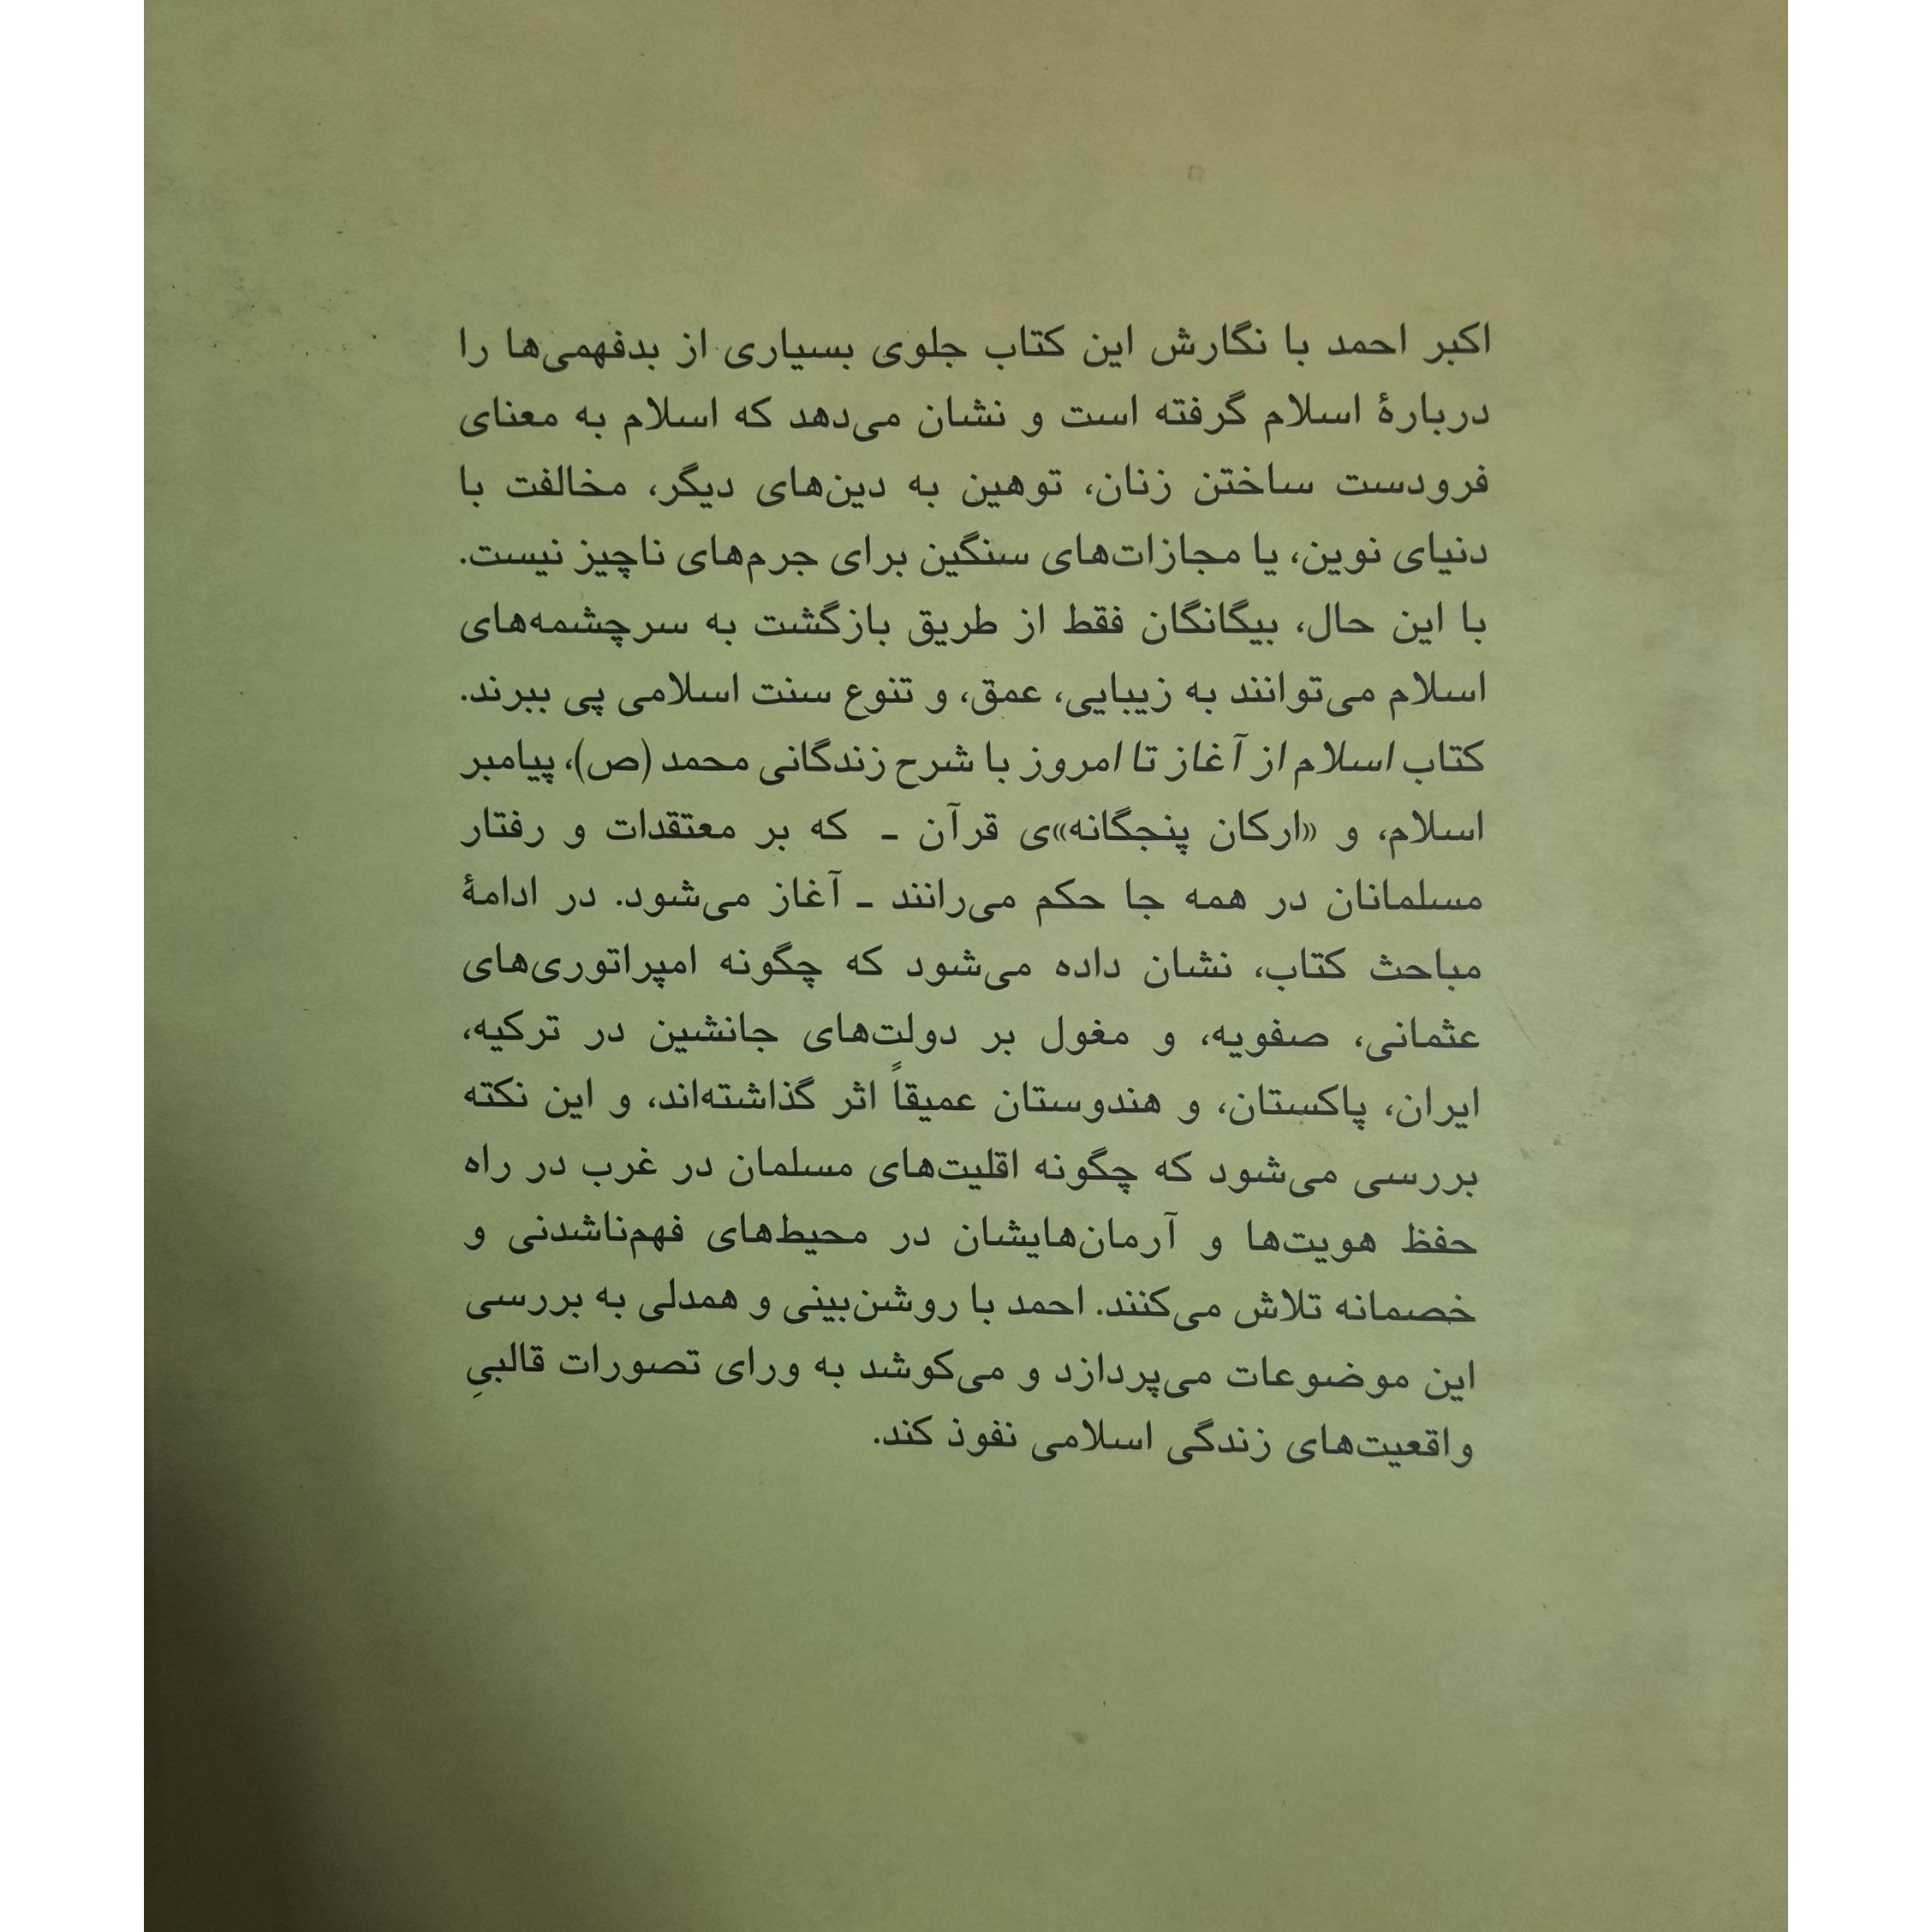 اکبر احمد با نگارش این کتاب جلوی بسیاری از بدفهمی‌ها را
دربارهٔ اسلام گرفته است و نشان می‌دهد که اسلام به معنای
فرودست ساختن زنان، توهین به دین‌های دیگر، مخالفت با
دنیای نوین، یا مجازات‌های سنگین برای جرم‌های ناچیز نیست.
با این حال، بیگانگان فقط از طریق بازگشت به سرچشمه‌های
اسلام می‌توانند به زیبایی، عمق، و تنوع سنت اسلامی پی ببرند.
کتاب اسلام از آغاز تا امروز با شرح زندگانی محمد (ص)، پیامبر
اسلام، و «ارکان پنجگانه»ی قرآن ـ که بر معتقدات و رفتار
مسلمانان در همه جا حکم می‌رانند ـ آغاز می‌شود. در ادامهٔ
مباحث کتاب، نشان داده می‌شود که چگونه امپراتوری‌های
عثمانی، صفویه، و مغول بر دولت‌های جانشین در ترکیه،
ایران، پاکستان، و هندوستان عمیقاً اثر گذاشته‌اند، و این نکته
بررسی می‌شود که چگونه اقلیت‌های مسلمان در غرب در راه
حفظ هویت‌ها و آرمان‌هایشان در محیط‌های فهم‌ناشدنی و
خصمانه تلاش می‌کنند. احمد با روشن‌بینی و همدلی به بررسی
این موضوعات می‌پردازد و می‌کوشد به ورای تصورات قالبیِ
واقعیت‌های زندگی اسلامی نفوذ کند.